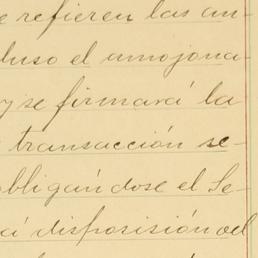 e refieren las an-
luso el amojona-
y se firmará la
transacción se-
obligándose el Se-
á disposisión del